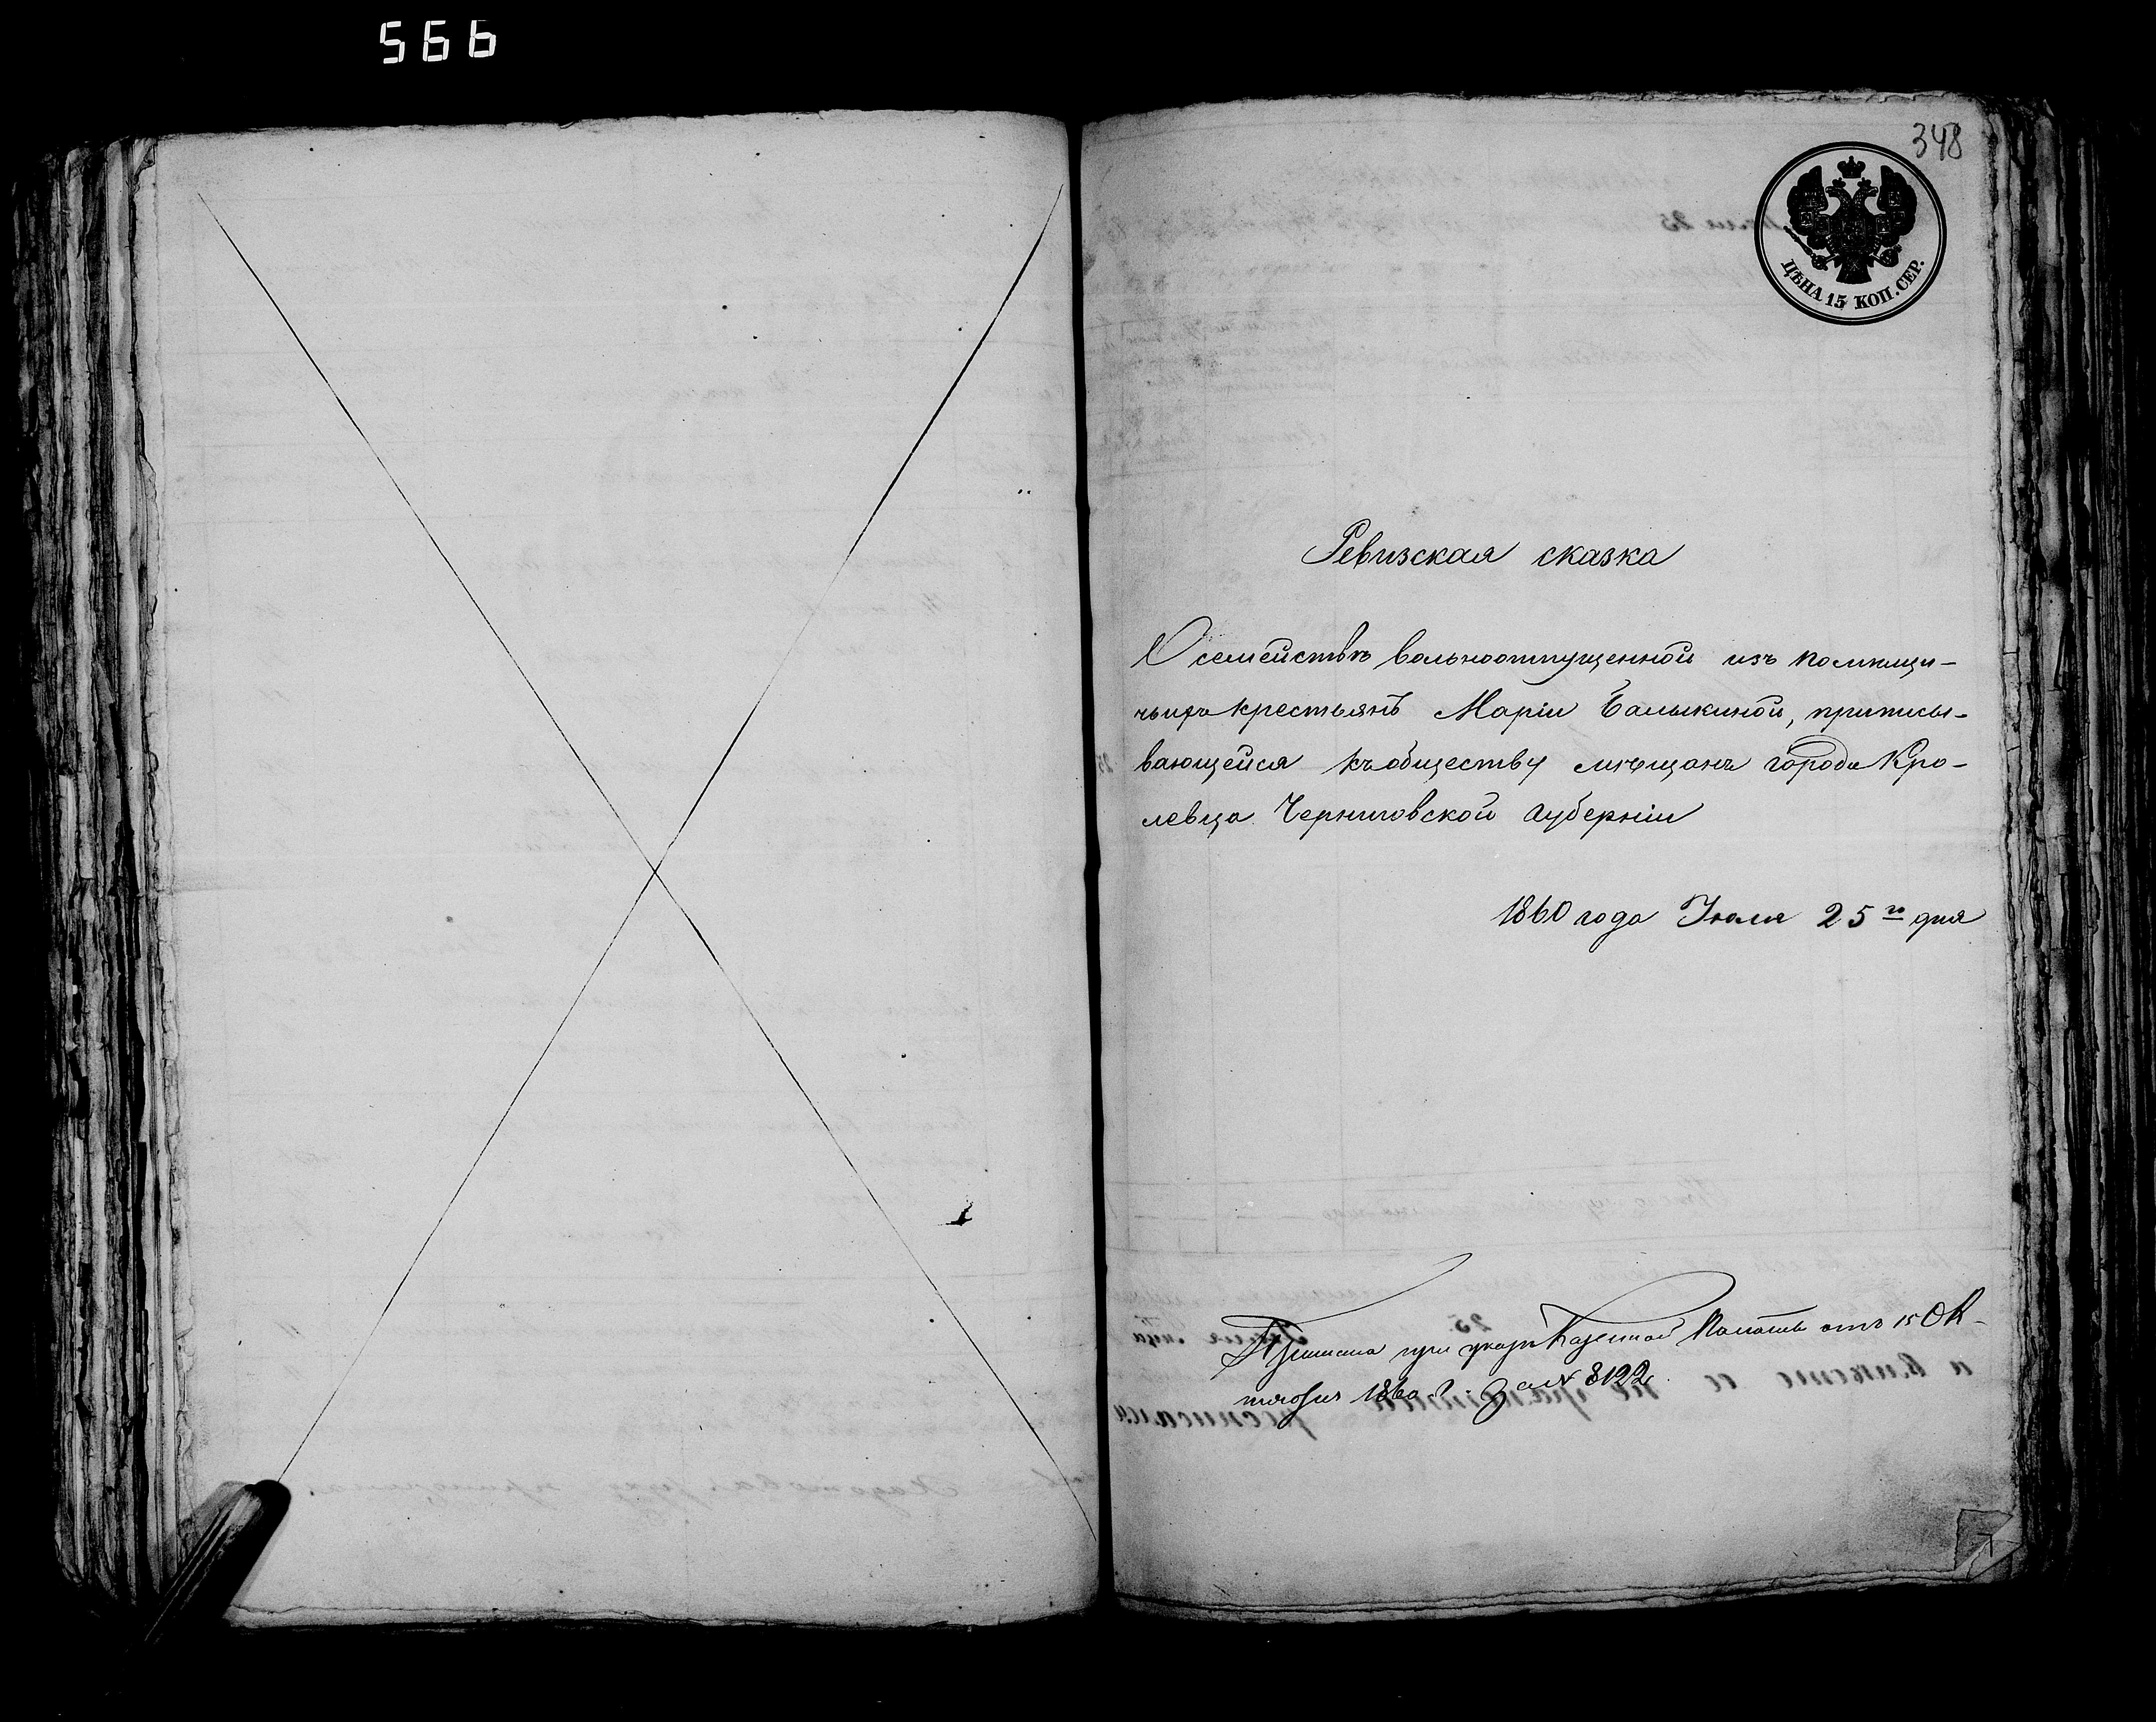 566
348
ЦѢНА 15 КОП. СЕР.
Ревизская сказка
О семействѣ вольноотпущенной изъ помѣщи-
чьихъ крестьянъ Маріи Балыкиной, приписы-
вающейся къ обществу мѣщанъ города Кро-
левца Черниговской губерніи
1860 года Іюля 25го дня
при указѣ Казенной Палаты отъ 15 Ок-
тября 1860 г. за № 8122